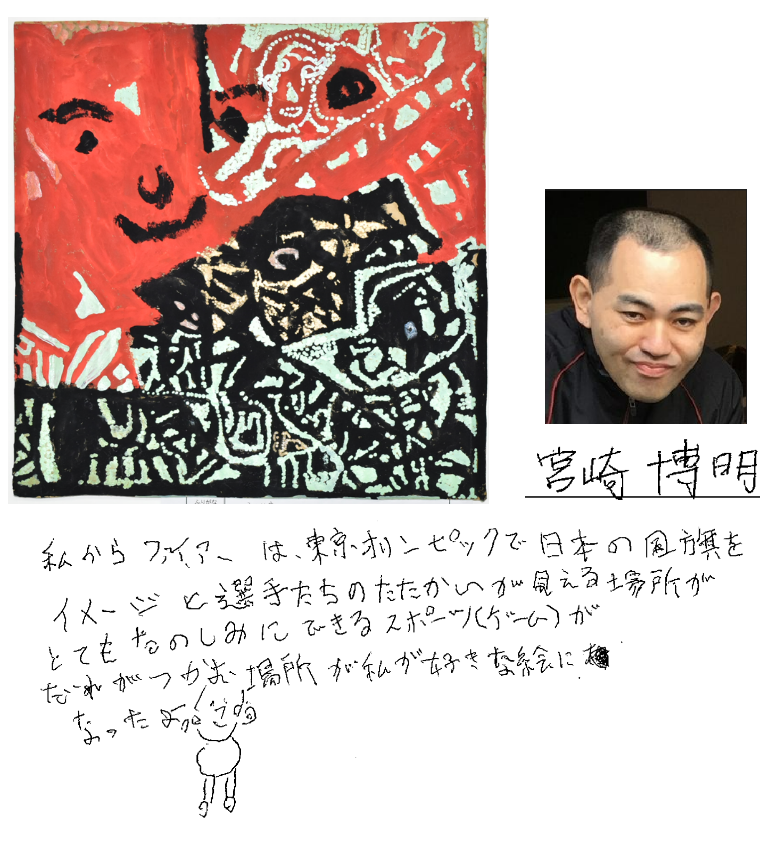 宮崎 博明
私から ファイアー は、東京オリンピックで 日本の国旗を
イメージ と選手たちのたたかいが見える場所が
とてもたのしみにできるスポーツ(ゲーム)が
だれがつかむ場所が私が好きな絵に
なったよ